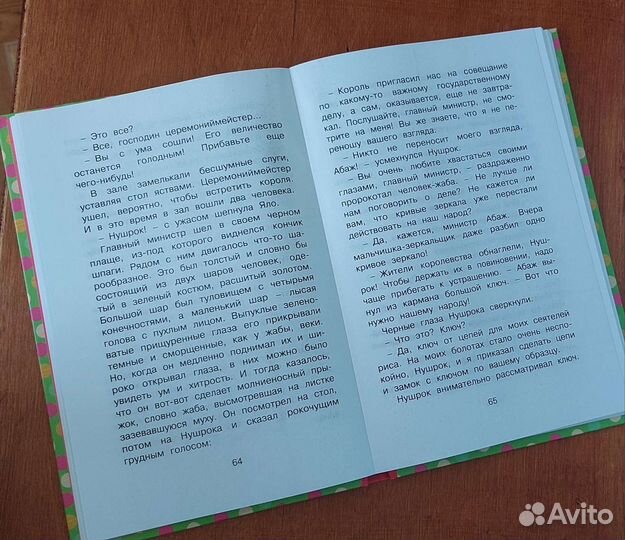 – Это все?
– Все, господин церемониймейстер...
– Вы с ума сошли! Его величество
останется голодным! Прибавьте еще
чего-нибудь!
В зале замелькали бесшумные слуги,
уставляя стол яствами. Церемониймейстер
ушел, вероятно, чтобы встретить короля.
И в это время в зал вошли два человека.
– Нушрок! – с ужасом шепнула Яло.
Главный министр шел в своем черном
плаще, из-под которого виднелся кончик
шпаги. Рядом с ним двигалось что-то ша-
рообразное. Это был толстый и словно бы
состоящий из двух шаров человек, оде-
тый в зеленый костюм, расшитый золотом.
Большой шар был туловищем с четырьмя
конечностями, а маленький шар – лысая
голова с пухлым лицом. Выпуклые зелено-
ватые прищуренные глаза его прикрывали
темные и сморщенные, как у жабы, веки.
Но, когда он медленно поднимал их и ши-
роко открывал глаза, в них можно было
увидеть ум и хитрость. И тогда казалось,
что он вот-вот сделает молниеносный пры-
жок, словно жаба, высмотревшая на листке
зазевавшуюся муху. Он посмотрел на стол,
потом на Нушрока и сказал рокочущим
грудным голосом:
64
– Король пригласил нас на совещание
по какому-то важному государственному
делу, а сам, оказывается, еще не завтра-
кал. Послушайте, главный министр, не смо-
трите на меня! Вы же знаете, что я не пе-
реношу вашего взгляда.
– Никто не переносит моего взгляда,
Абаж! – усмехнулся Нушрок.
– Вы очень любите хвастаться своими
глазами, главный министр, – раздраженно
пророкотал человек-жаба. – Не лучше ли
нам поговорить о деле? Не кажется ли
вам, что кривые зеркала уже перестали
действовать на наш народ?
– Да, кажется, министр Абаж. Вчера
мальчишка-зеркальщик даже разбил одно
кривое зеркало!
– Жители королевства обнаглели, Нуш-
рок! Чтобы держать их в повиновении, надо
чаще прибегать к устрашению. – Абаж вы-
нул из кармана большой ключ. – Вот что
нужно нашему народу!
Черные глаза Нушрока сверкнули.
– Что это? Ключ?
– Да, ключ от цепей для моих сеятелей
риса. На моих болотах стало очень неспо-
койно, Нушрок, и я приказал сделать цепи
и замок с ключом по вашему образцу.
Нушрок внимательно рассматривал ключ.
65
Avito